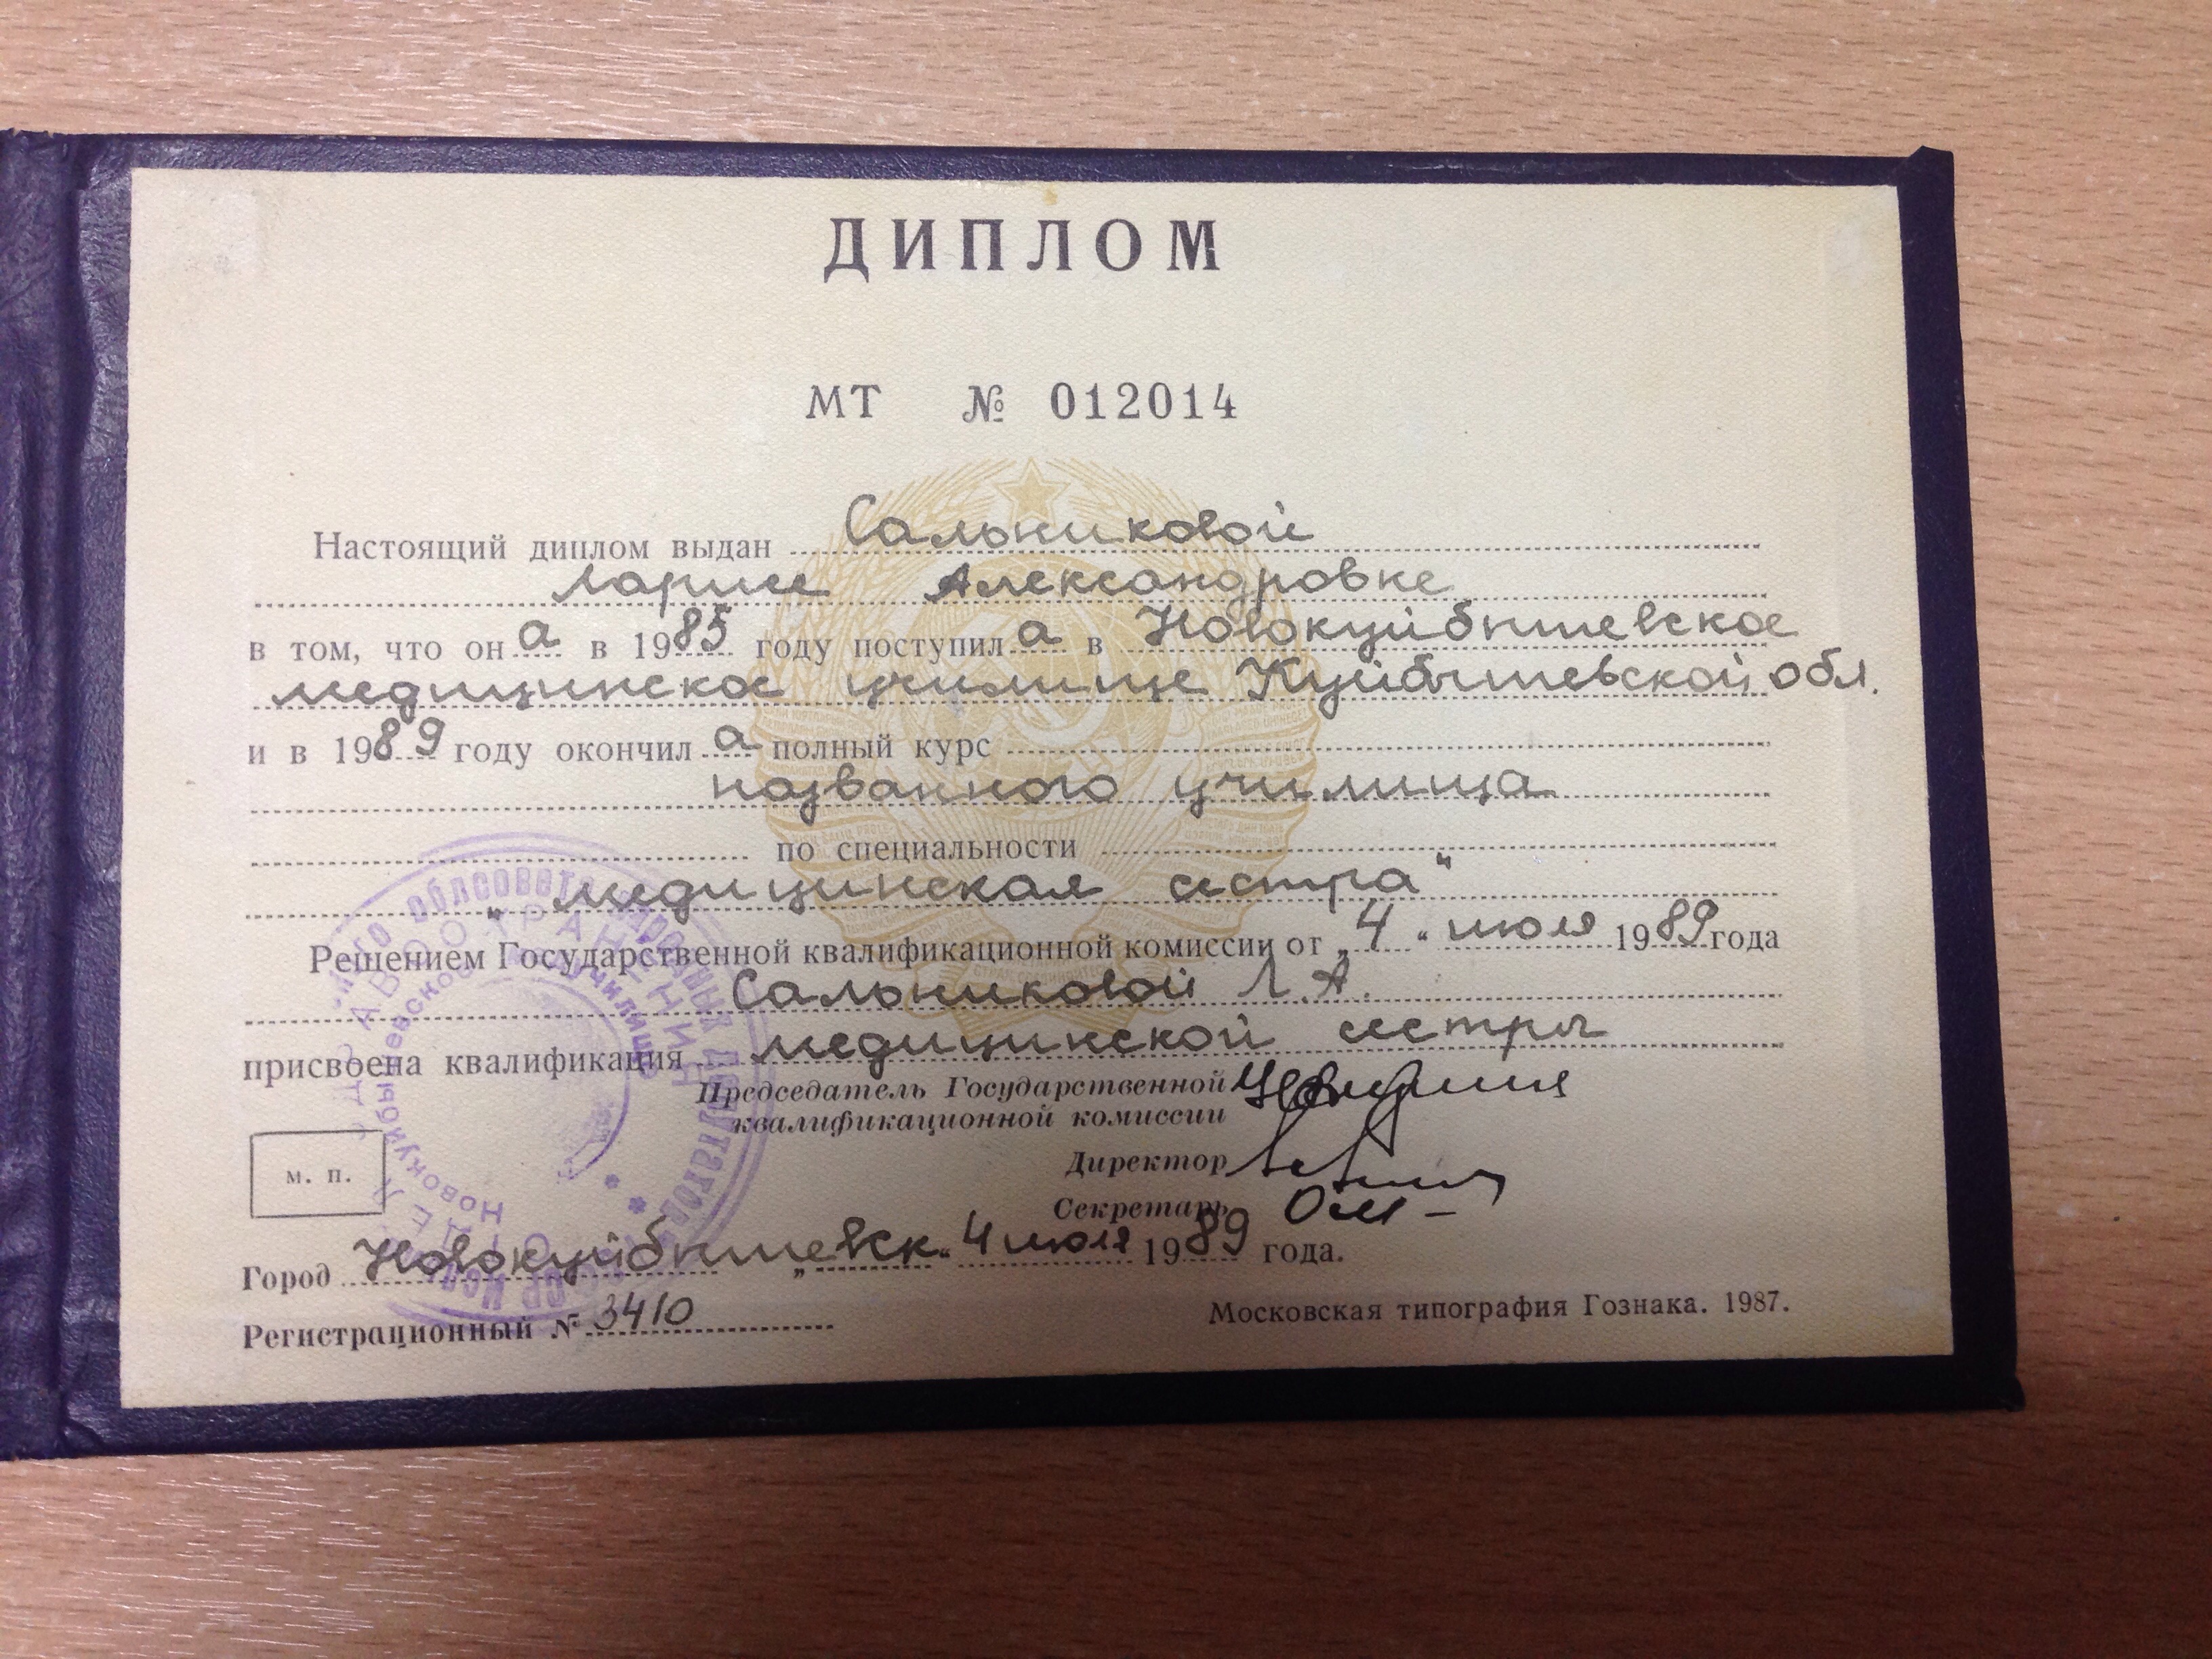 ДИПЛОМ
МТ № 012014
Настоящий диплом выдан Сальниковой
Ларисе Александровке
в том, что он а в 1985 году поступил а в Новокуйбышевское
медицинское училище Куйбышевской обл.
и в 1989 году окончил а полный курс
названного училища
по специальности
„медицинская сестра“
Решением Государственной квалификационной комиссии от „4“ июля 1989 года
Сальниковой Л.А.
присвоена квалификация медицинской сестры
Председатель Государственной
квалификационной комиссии
Директор
Секретарь
м. п.
Город Новокуйбышевск „4 июля 1989 года.
Регистрационный № 3410
Московская типография Гознака. 1987.